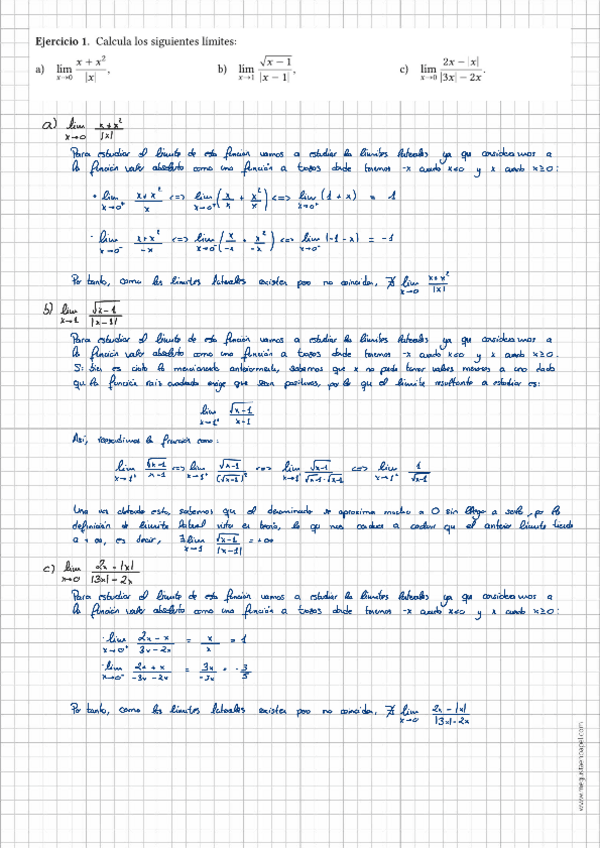 Ejercicio 1. Calcula los siguientes límites:
a) lim x→0 (x + x²)/|x|, b) lim x→1 √(x − 1)/|x − 1|, c) lim x→0 (2x − |x|)/(|3x| − 2x).
a) lim x→0 (x+x²)/|x|
Para estudiar el límite de esta función vamos a estudiar los límites laterales ya que consideramos a
la función valor absoluto como una función a trozos donde tenemos -x cuando x<0 y x cuando x≥0:
• lim x→0⁺ (x+x²)/x <=> lim x→0⁺ (x/x + x²/x) <=> lim x→0⁺ (1 + x) = 1
· lim x→0⁻ (x+x²)/-x <=> lim x→0⁻ (x/-x + x²/-x) <=> lim x→0⁻ (-1 - x) = -1
Por tanto, como los límites laterales existen pero no coinciden, ∄ lim x→0 (x+x²)/|x|
b) lim x→1 √(x-1)/|x-1|
Para estudiar el límite de esta función vamos a estudiar los límites laterales ya que consideramos a
la función valor absoluto como una función a trozos donde tenemos -x cuando x<0 y x cuando x≥0.
Si bien es cierto lo mencionado anteriormente, sabemos que x no puede tomar valores menores a uno dado
que la función raíz cuadrada exige que sean positivos, por lo que el límite resultante a estudiar es:
lim x→1⁺ √(x-1)/(x-1)
Así, reescribimos la función como:
lim x→1⁺ √(x-1)/(x-1) <=> lim x→1⁺ √(x-1)/(√(x-1))² <=> lim x→1⁺ √(x-1)/(√(x-1)·√(x-1)) <=> lim x→1⁺ 1/√(x-1)
Una vez obtenido esto, sabemos que el denominador se aproxima mucho a 0 sin llegar a serlo, por la
definición de límite lateral vista en teoría, lo que nos conduce a que el anterior límite tiende
a +∞, es decir, ∃ lim x→1 √(x-1)/|x-1| = +∞
c) lim x→0 (2x - |x|)/(|3x| - 2x)
Para estudiar el límite de esta función vamos a estudiar los límites laterales ya que consideramos a
la función valor absoluto como una función a trozos donde tenemos -x cuando x<0 y x cuando x≥0:
· lim x→0⁺ (2x - x)/(3x - 2x) = x/x = 1
· lim x→0⁻ (2x + x)/(-3x - 2x) = 3x/-5x = -3/5
Por tanto, como los límites laterales existen pero no coinciden, ∄ lim x→0 (2x - |x|)/(|3x| - 2x)
www.megustaenpapel.com